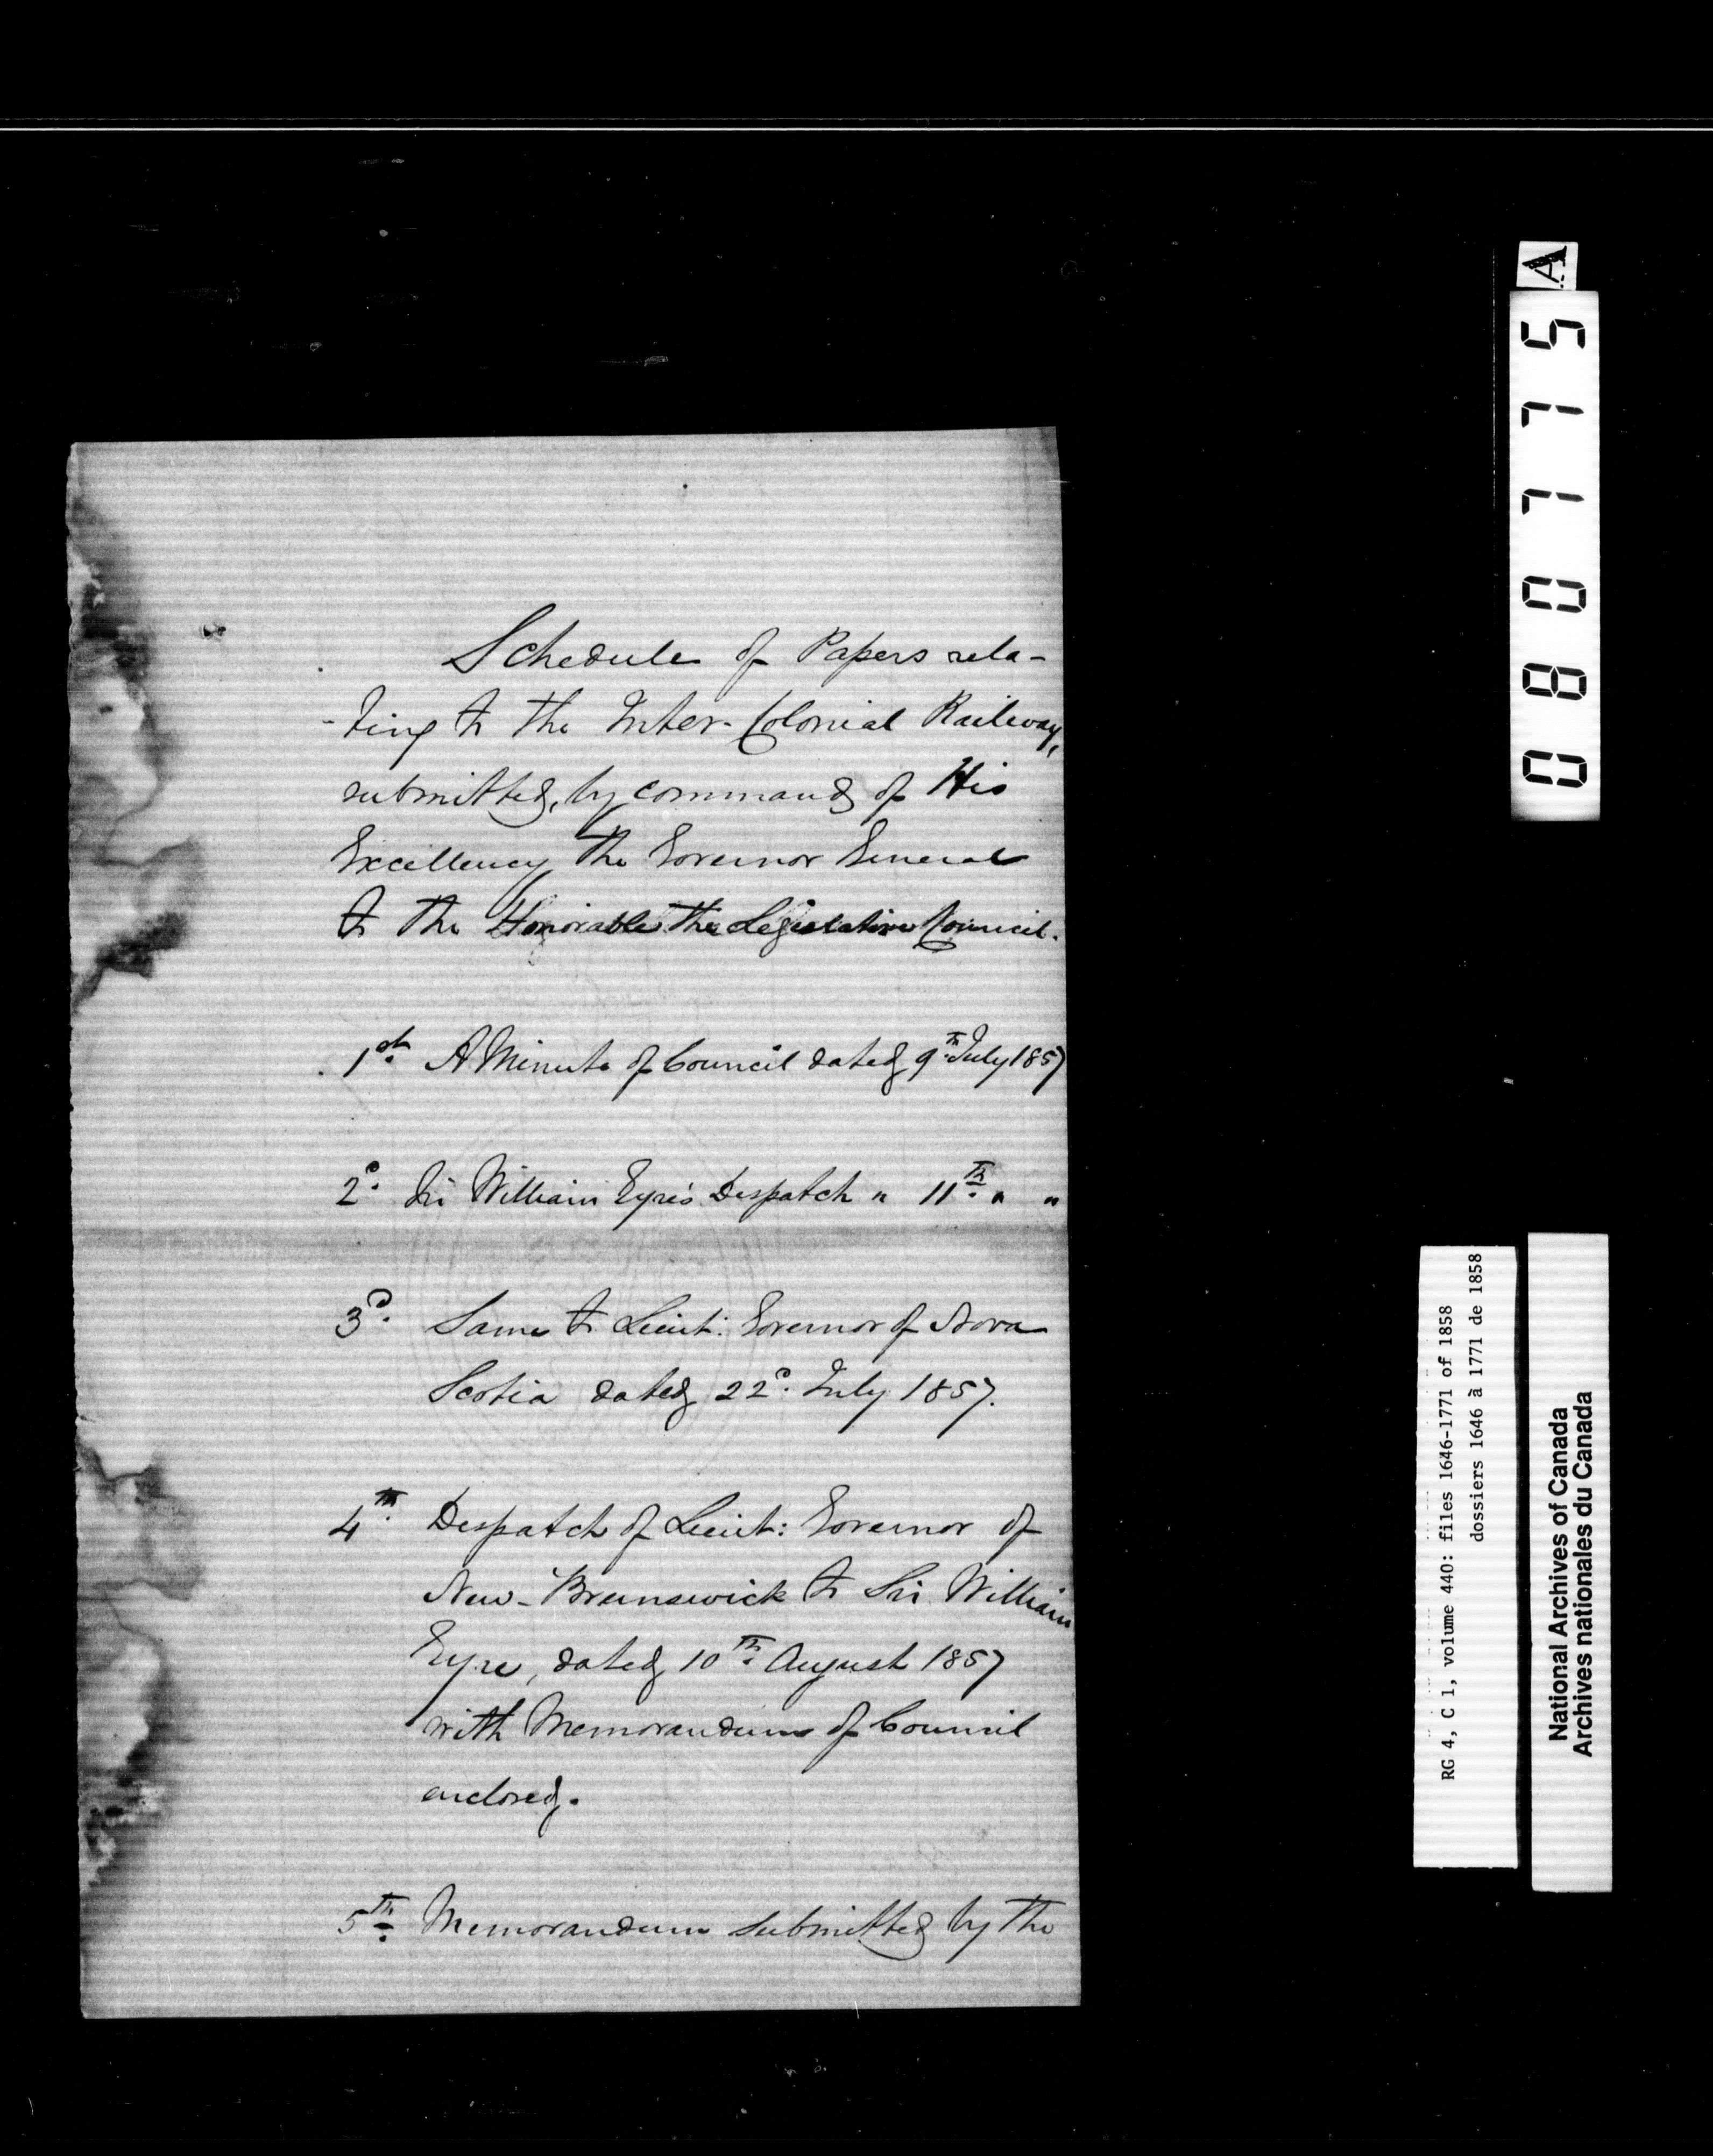 Schedule of Papers rela-
-ting to the Inter-Colonial Railway,
submitted, by command of His
Excellency the Governor General
to the Honorable the Legislative Council.
1st. A Minute of Council dated 9th July 1857
2d. Sir William Eyre's Despatch " 11th. " "
3d. Same to Lieut: Governor of Nova
Scotia dated 22d. July 1857.
4th. Despatch of Lieut: Governor of
New-Brunswick to Sir William
Eyre, dated 10th. August 1857
with Memorandum of Council
enclosed.
5th. Memorandum submitted by the
080775 A
RG 4, C 1, volume 440: files 1646-1771 of 1858
dossiers 1646 à 1771 de 1858
National Archives of Canada
Archives nationales du Canada